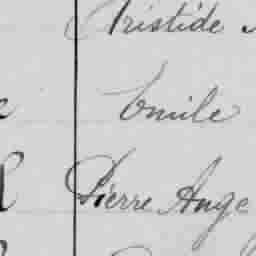 Aristide
Emile
Pierre Ange